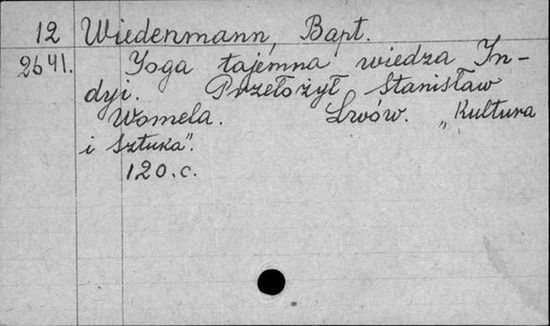 12 Wiedenmann, Bapt.
2641. Yoga tajemna wiedza In-
dyi. Przełożył Stanisław
Womela. Lwów. „Kultura
i Sztuka".
120. c.